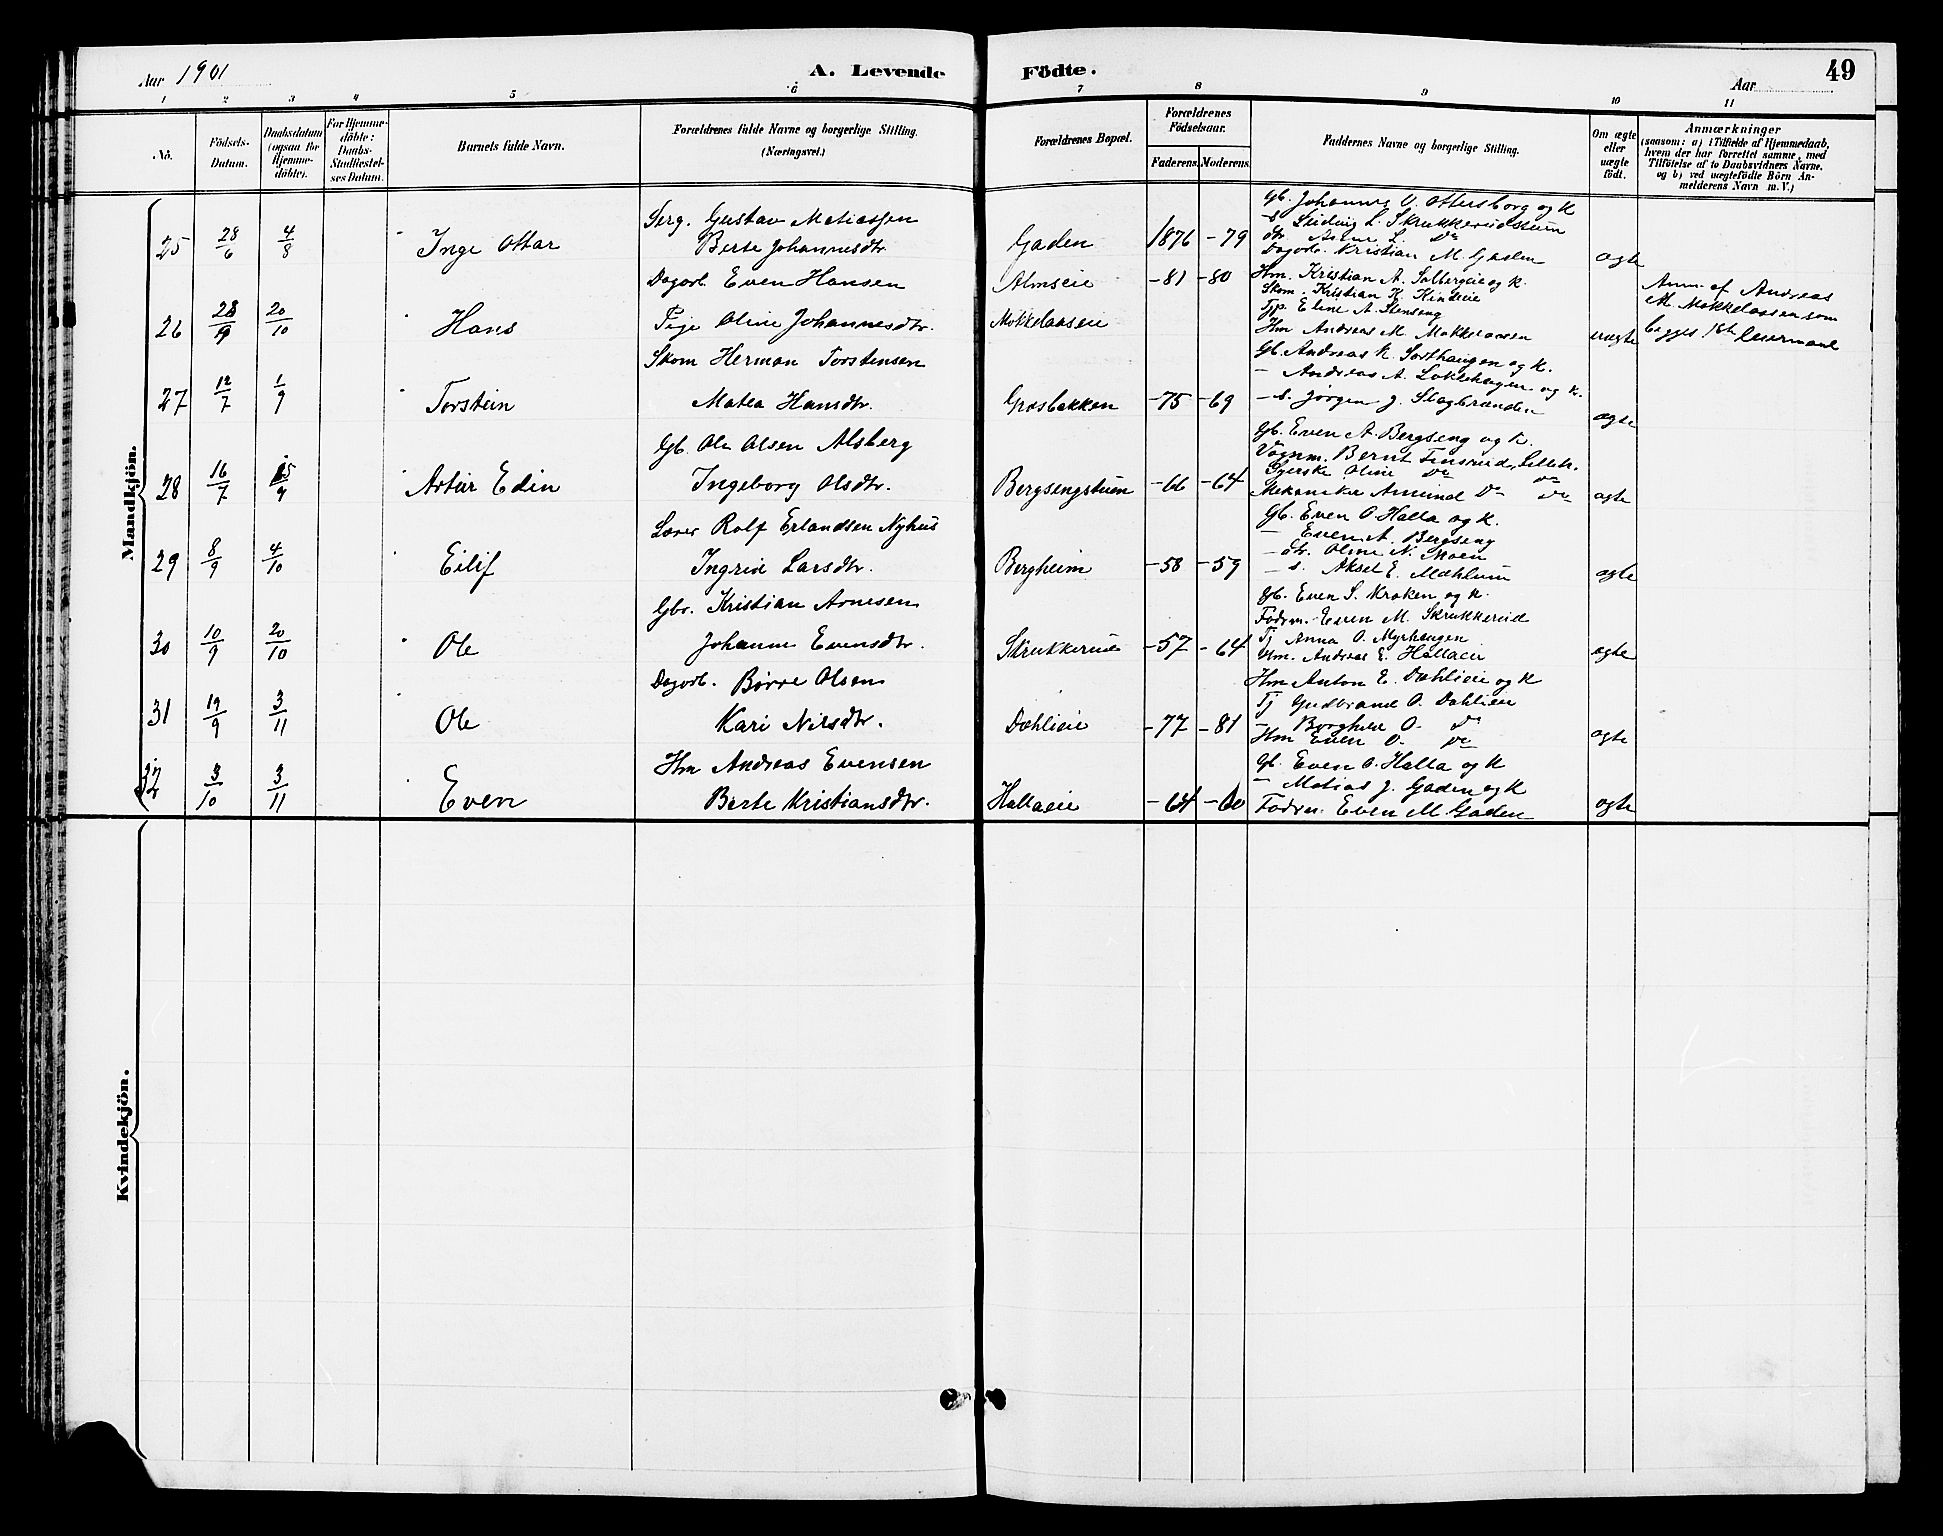 Aar 1901
A. Levende Födte.
Aar
49
1 2 3 4 5 6 7 8 9 10 11
No.
Födsels-Datum.
Daabsdatum (ogsaa for Hjemme-döbte).
For Hjemme-döbte: Daabs-Stadfæstel-ses Datum.
Barnets fulde Navn.
Forældrenes fulde Navne og borgerlige Stilling. (Næringsvei.)
Forældrenes Bopæl.
Forældrenes Födselsaar.
Faderens. Moderens.
Faddernes Navne og borgerlige Stilling.
Om ægte eller uægte födt.
Anmærkninger
(saasom: a) i Tilfælde af Hjemmedaab,
hvem der har forrettet samme, med
Tilföielse af to Daabsvidners Navne,
og b) ved uægtefödte Börn An-
melderens Navn m. V.)
Mandkjön.
25 28/6 4/8 Inge Ottar
Serg. Gustav Matiassen
Berte Johannesdtr
Gaden 1876 -79
Gb. Johannes O. Ottersborg og K
-s. Ludvig L. Skrukkerudstuen
dtr Anne L. Do
Dagarb. Kristian M. Gaden
ægte
26 28/9 20/10 Hans
Dagarb. Even Hansen
Pige Oline Johannesdtr.
Almseie -81 -80
Mokkelaaseie
Hm. Kristian A. Solbergeie og K.
Skom. Kristian K. Kindeie
Tjp. Eline A. Stenseng
Hm Andreas M. Mokkelaasen
uægte
Anm. af Andreas
M. Mokkelaasen som
begges 1ste leiermaal
27 12/7 1/9 Torstein
Skom Herman Torstensen
Matea Hansdtr.
Grosbakken -75 -69
Gb. Andreas K. Sorthaugen og K.
- Andreas A. Loklehaugen og K.
-s. Jørgen J. Slagbranden
ægte
28 16/7 15/9 Artur Edin
Gb. Ole Olsen Alsberg
Ingeborg Olsdtr.
Bergsengstuen -66 -64
Gb. Even A. Bergseng og K.
Vognm. Bernt Finsrud, Lilleh.
Syerske Oline Do Do
Mekaniker Amund Do Do
ægte
29 8/9 4/10 Eilif
Lærer Rolf Erlandsen Nyhus
Ingrid Larsdtr.
Bergheim -58 -59
Gb. Even O. Halla og K.
- Even A. Bergseng
- dtr. Oline N. Moen
- s. Aksel E. Mæhlum
ægte
30 10/9 20/10 Ole
Gbr. Kristian Arnesen
Johanne Evensdtr.
Skrukkerud -57 -64
Gb. Even S. Kroken og K.
Fodrm. Even M. Skrukkerud
Tj Anna O. Myrhaugen
Um. Andreas E. Hallaeie
ægte
31 19/9 3/11 Ole
Dagarb. Børre Olsen
Kari Nilsdtr.
Dahlieie -77 -81
Hm Anton E. Dahlieie og K
Tj Gudbrand O. Dahlien
- Borghild O. Do
Hm Even O. Do
ægte
32 3/10 3/11 Even
Hm Andreas Evensen
Berte Kristiansdtr.
Hallaeie -64 -60
Gb. Even O. Halla og K
- Matias J. Gaden og K
Fodrm. Even M. Gaden
ægte
Kvindekjön.